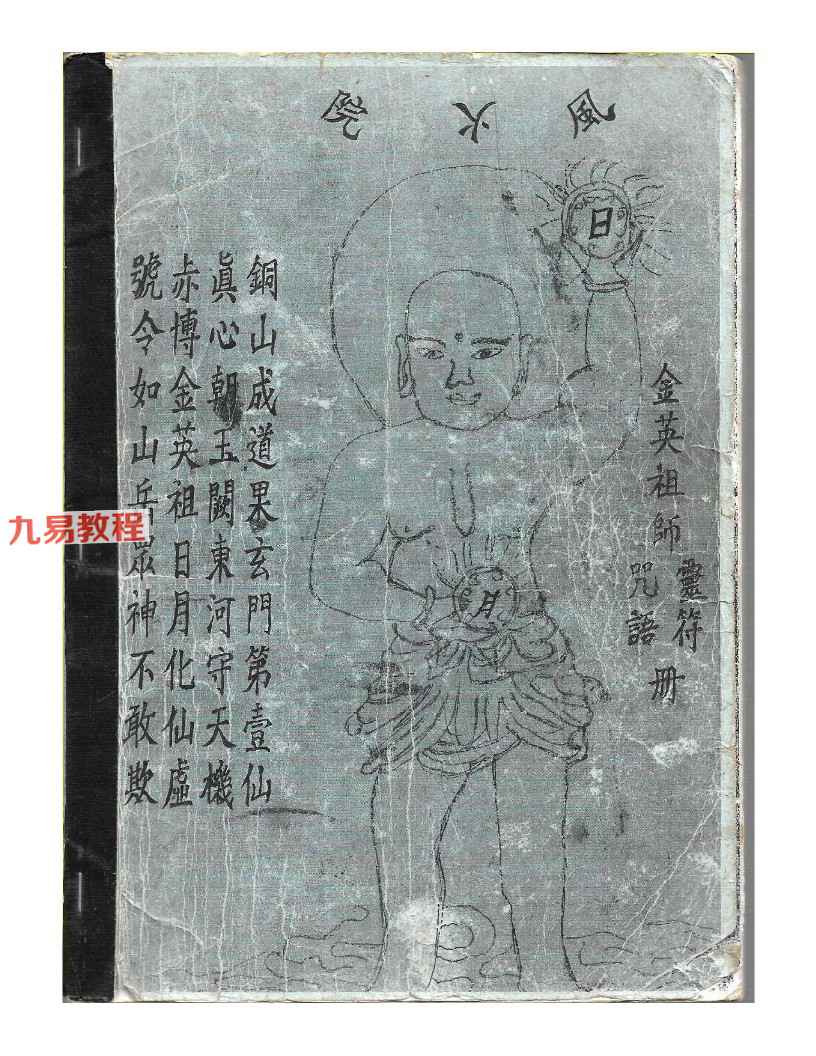 風火
金英祖師
靈符
咒語
冊
銅山成道果玄門第壹仙
眞心朝玉闕東河守天機
赤博金英祖日月化仙虛
號令如山岳眾神不敢欺
日
月
九易教程